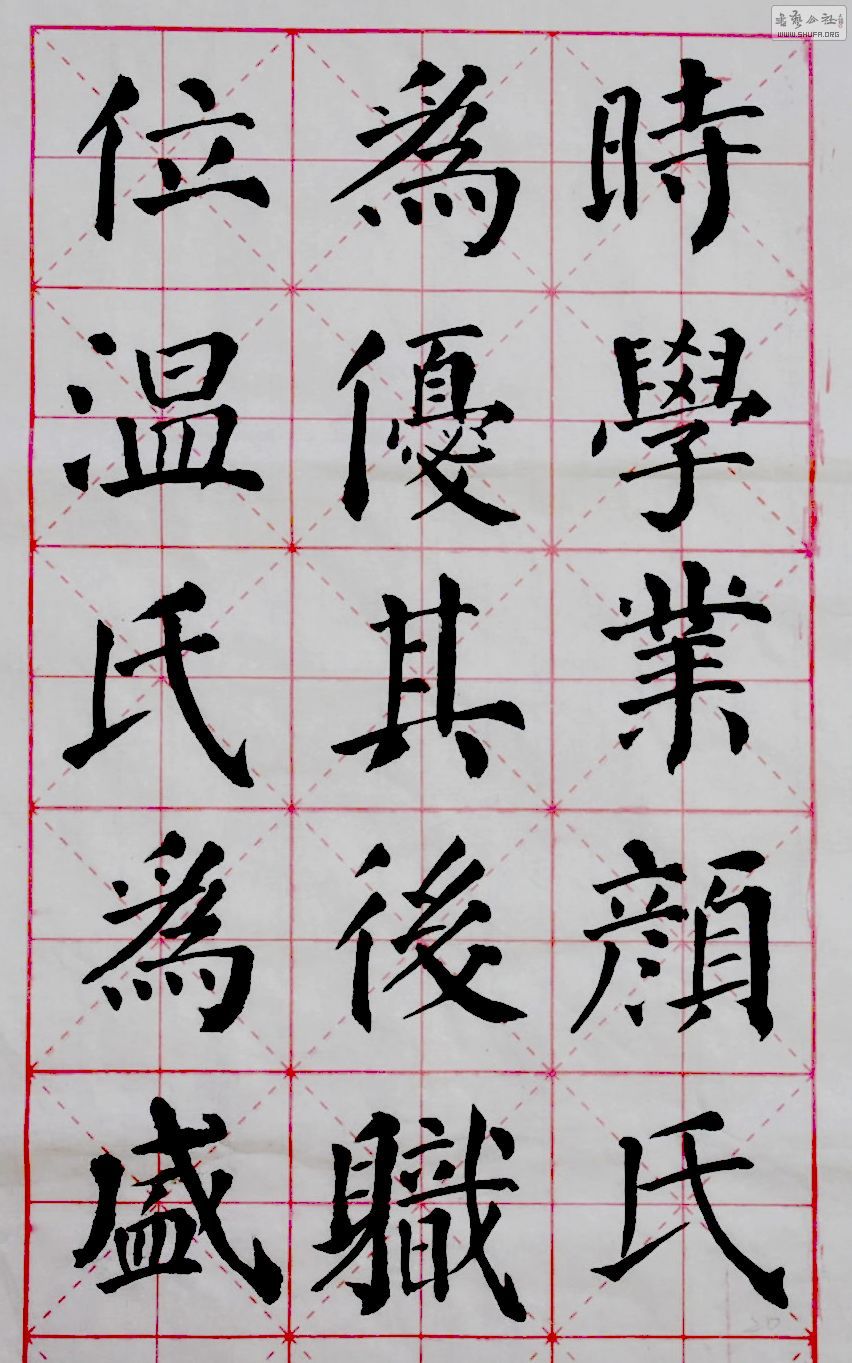 時學業顏氏
為優其後軄
位温氏為盛
書藝公社
WWW.SHUFA.ORG